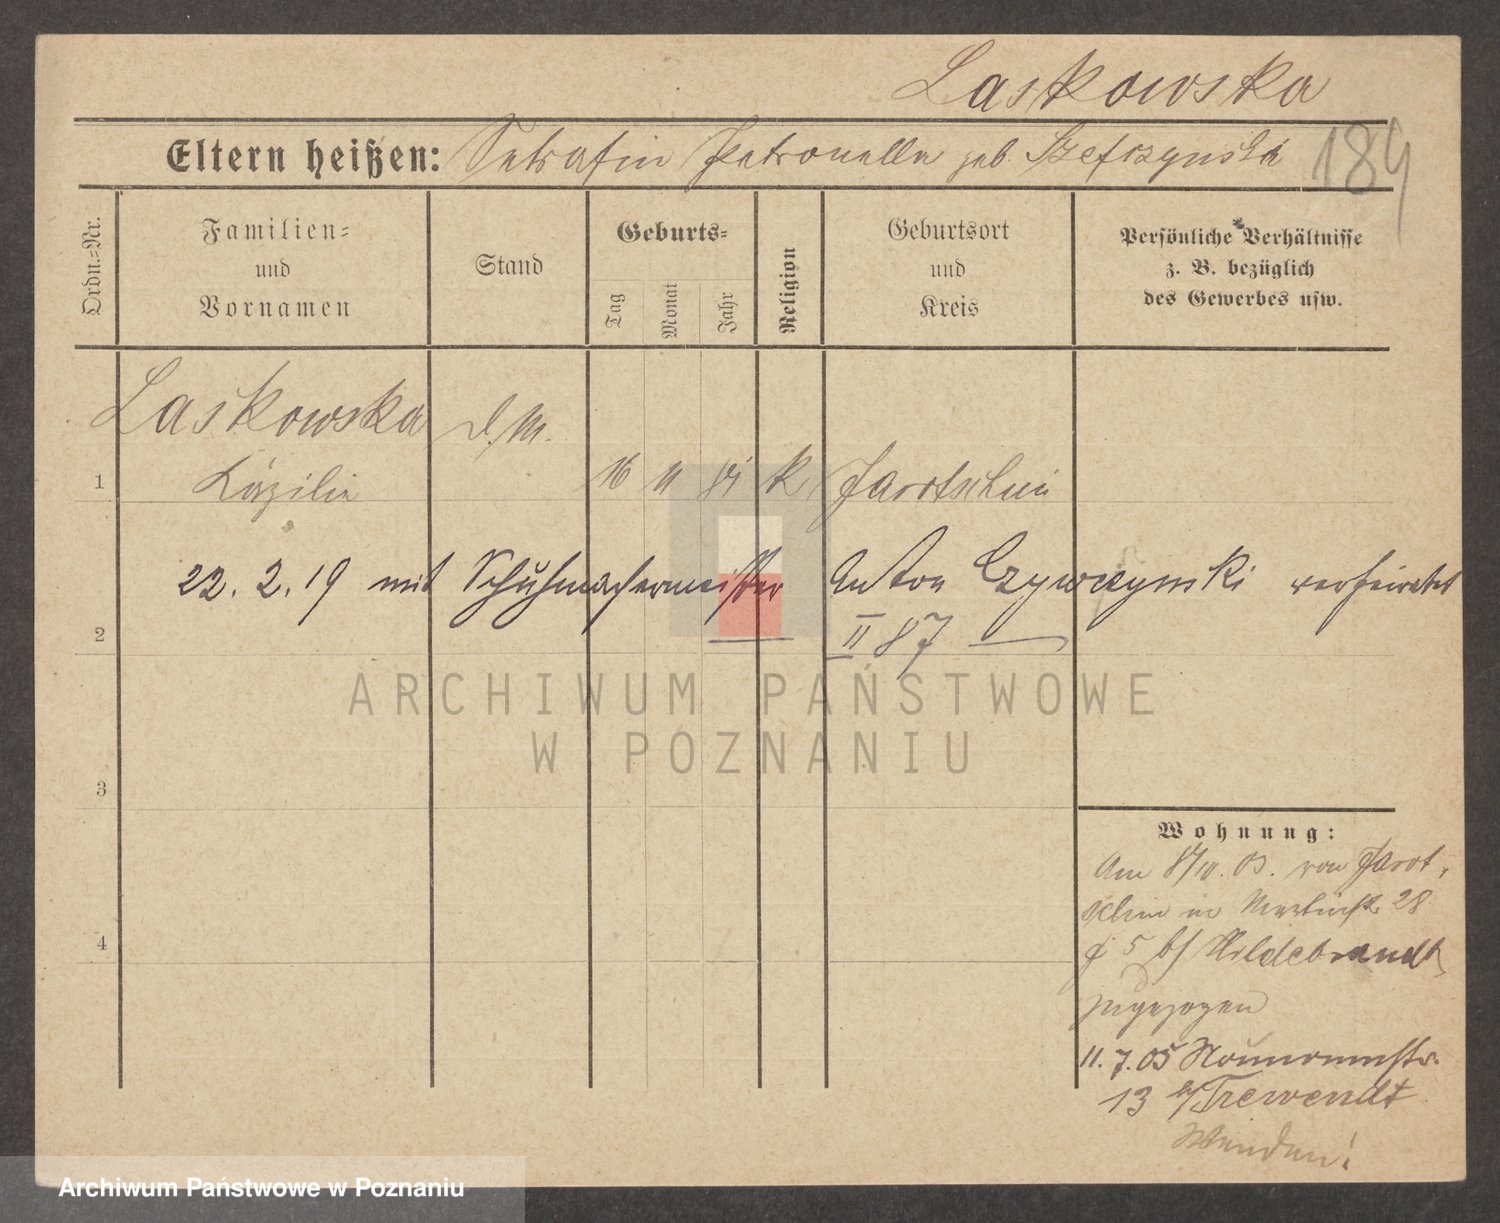 Laskowska
Eltern heißen: Serafin Petronella geb. Szefczynska
189
Ordn.-Nr.
Familien-
und
Vornamen
Stand
Geburts-
Tag
Monat
Jahr
Religion
Geburtsort
und
Kreis
Persönliche Verhältnisse
z. B. bezüglich
des Gewerbes usw.
Laskowska d. M.
1 Cäzilie 16 11 K Jarotschin
22. 2. 19 mit Schuhmachermeister Anton verheiratet
2 II 87
ARCHIWUM PAŃSTWOWE
W POZNANIU
3
Wohnung:
Am 8/10. 03. von Jarot-
schin in Martinstr. 28
b/ Hildebrandt
zugezogen
11. 7. 05
13 b/ Trewendt
Wenden!
4
Archiwum Państwowe w Poznaniu